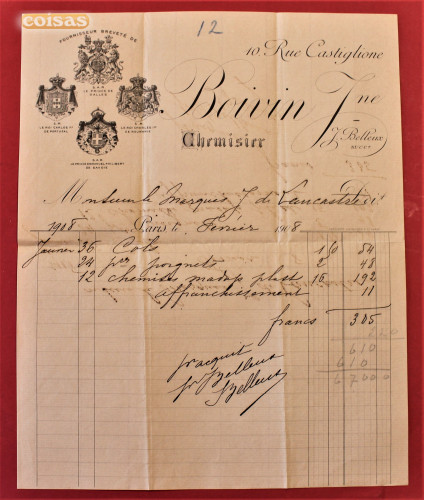 coisas
12
FOURNISSEUR BREVETÉ DE
10, Rue Castiglione
S.A.R.
LE PRINCE DE
GALLES
Boivin Jne
S.M.
LE ROI CARLOS Ier
DE PORTUGAL
S.M.
Chemisier
J. Belleux
SUCCr
S.A.R.
DE SAVOIE
Monsieur le Marquis J. de Lancastre Doit
1908 Paris le Février 1908
Janvier 36 Cols 1/6 54
24 prs poignets 2 48
12 chemises madap. plast 16 192
affranchissement 11
francs 305
610
610
67000
pr acquit
pr J Belleux
J Belleux